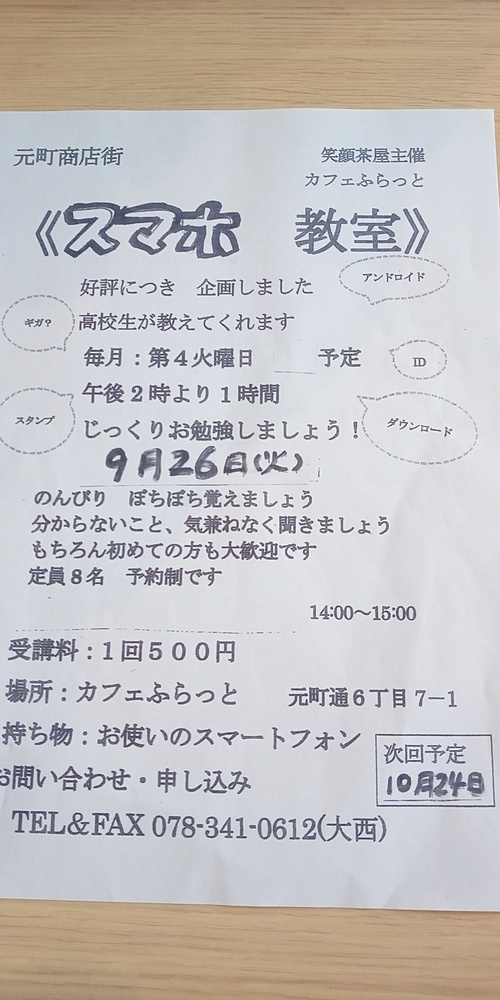 元町商店街
笑顔茶屋主催
カフェふらっと
《スマホ 教室》
好評につき 企画しました
アンドロイド
ギガ?
高校生が教えてくれます
毎月：第４火曜日 予定
ID
午後２時より１時間
スタンプ
じっくりお勉強しましょう！
ダウンロード
9月26日(火)
のんびり ぼちぼち覚えましょう
分からないこと、気兼ねなく聞きましょう
もちろん初めての方も大歓迎です
定員８名 予約制です
14:00～15:00
受講料：１回５００円
場所：カフェふらっと 元町通６丁目７－１
持ち物：お使いのスマートフォン
次回予定
10月24日
お問い合わせ・申し込み
TEL＆FAX 078-341-0612(大西)